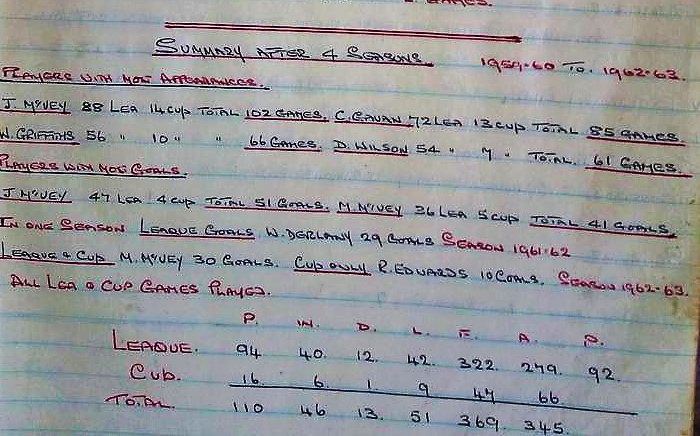 GAMES.
SUMMARY AFTER 4 SEASONS. 1959-60 TO. 1962-63.
PLAYERS WITH MOST APPEARANCES.
J. McVEY 88 LEA 14 CUP TOTAL 102 GAMES. C. GAVAN 72 LEA 13 CUP TOTAL 85 GAMES.
W. GRIFFITHS 56 " 10 " " 66 GAMES. D. WILSON 54 " 7 " TOTAL. 61 GAMES.
PLAYERS WITH MOST GOALS
J McVEY 47 LEA 4 CUP TOTAL 51 GOALS. M. McVEY 36 LEA 5 CUP TOTAL 41 GOALS.
IN ONE SEASON LEAGUE GOALS W. DERLANY 29 GOALS SEASON 1961-62
LEAGUE & CUP M. McVEY 30 GOALS. CUP ONLY R. EDWARDS 10 GOALS. SEASON 1962-63.
ALL LEA & CUP GAMES PLAYED.
P. W. D. L. F. A. P.
LEAGUE. 94 40. 12. 42. 322. 279. 92.
CUP. 16. 6. 1. 9 47 66.
TOTAL. 110 46 13. 51 369. 345.